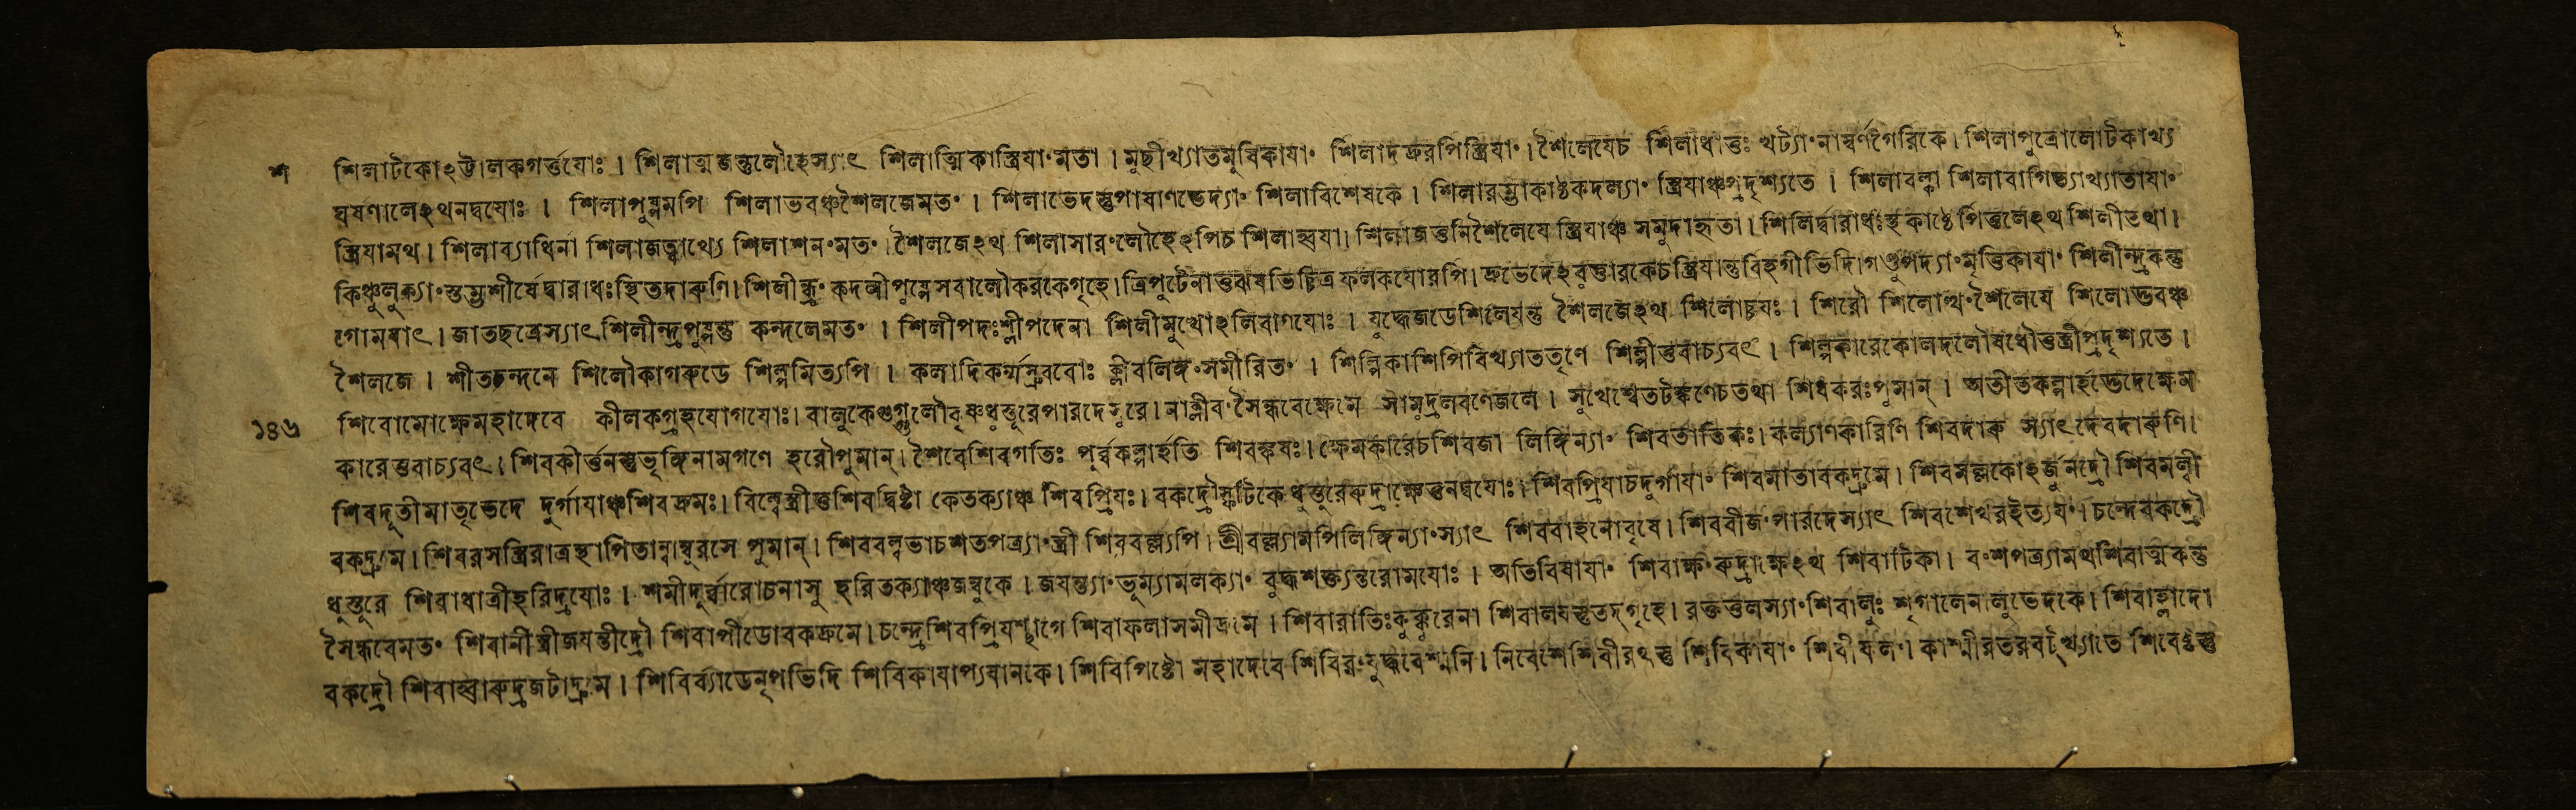 শ শিলাটকোঽট্টালকগর্ত্তযোঃ । শিলাত্মজন্তুলৌহেস্যাৎ শিলাত্মিকাস্ত্রিযাং মতা । মুছীখ্যাতমুষিকাযাং শিলাদদ্রুরপিস্ত্রিযাং । শৈলেযেচ শিলাধাতুঃ খট্যাং নাস্বর্ণগৈরিকে । শিলাপুত্রোলোটকাখ্য
ঘষণালেঽথনদ্বযোঃ । শিলাপুষ্পমপি শিলাভবঞ্চশৈলজেমতং । শিলাভেদস্তুপাষাণভেদ্যাং শিলাবিশেষকে । শিলারম্ভাকাষ্ঠকদল্যাং স্ত্রিযাঞ্চপ্রদৃশ্যতে । শিলাবল্কা শিলাবাগিত্ত্যাখ্যাতাযাং
স্ত্রিযামথ । শিলাব্যাধির্না শিলাজত্বাখ্যে শিলাশনং মতং । শৈলজেঽথ শিলাসারং লৌহেঽপিচ শিলাহ্বযা । শিলাজতুনিশৈলেযে স্ত্রিযাঞ্চ সমুদাহৃতা । শিলির্দ্বারাধঃস্থকাষ্ঠে র্পিত্তলেঽথ শিলীতথা ।
কিঞ্চুলুক্যাং স্তম্ভশীর্ষেদ্বারাধঃস্থিতদারুণি । শিলীন্ধ্রং কদলীপুষ্পেসবালৌকরকেগৃহে । ত্রিপুটেনাত্তুবাষভিচ্চিত্রফলকযোরপি । দ্রুভেদেঽবুত্তারকেচস্ত্রিযান্তুবিহগীভিদি । গণ্ডুপদ্যাং মৃত্তিকাযাং শিলীন্দ্রকন্তু
গোমযাৎ । জাতছত্রেস্যাৎ শিলীন্দ্রপুষ্পন্তু কন্দলেমতং । শিলীপদঃশ্লীপদেনা শিলীমুখোঽলিবাণযোঃ । যুদ্ধেজডেশিলেযন্তু শৈলজেঽথ শিলোচ্চযঃ । শিরৌ শিলোত্থং শৈলেযে শিলোদ্ভবঞ্চ
শৈলজে । শীতচন্দনে শিলৌকাগরুডে শিল্পমিত্যপি । কলাদিকর্ম্মস্রুববোঃ ক্লীবলিঙ্গং সমীরিতং । শিল্পিকাশিপিবিখ্যাততৃণে শিল্পীতুবাচ্যবৎ । শিল্পকারেকোলদলৌষধৌতুস্ত্রীপ্রদৃশ্যতে ।
১৪৬ শিবোমোক্ষেমহাদেবে কীলকগ্রহযোগযোঃ । বালুকেগুগ্গুলৌকৃষ্ণধুস্তূরেপারদেসুরে । নাক্লীবং সৈন্ধবেক্ষেমে সামুদ্রলবণেজলে । সুখেশ্বেতটঙ্কণেচতথা শিবকরঃপুমান্ । অতীতকল্পার্হদ্ভেদেক্ষেম
কারেতুবাচ্যবৎ । শিবকীর্ত্তনস্তুভৃঙ্গিনামগণে হরৌপুমান্ । শৈবেশিবগতিঃ পূর্ব্বকল্পার্হতি শিবঙ্করঃ । ক্ষেমকারেচশিবজা লিঙ্গিন্যাং শিবতাতিকঃ । কল্যাণকারিণি শিবদারু স্যাৎদেবদারুণি ।
শিবদূতীমাতৃভেদে দুর্গাযাঞ্চশিবদ্রুমঃ । বিল্বেস্ত্রীতুশিবদ্বিষ্টা কেতক্যাঞ্চ শিবপ্রিযঃ । বকদ্রৌস্ফটিকেধুস্তুরেরুদ্রাক্ষেতুনদ্বযোঃ । শিবপ্রিযাচদুর্গাযাং শিবমাতাবকদ্রুমে । শিবমল্লকোঽর্জ্জুনদ্রৌ শিবমল্লী
বকদ্রুমে । শিবরসস্ত্রিরাত্রহাপিতান্নাম্বুরসে পুমান্ । শিববল্লভাচশতপত্র্যাং স্ত্রী শিববল্ল্যপি । শ্রীবল্ল্যামপিলিঙ্গিন্যাং স্যাৎ শিববাহনোবৃষে । শিববীজং পারদেস্যাৎ শিবশেখরইত্যযং । চন্দ্রেবকদ্রৌ
ধুস্তুরে শিবাধাত্রীহরিদ্রযোঃ । শমীদুর্ব্বারোচনাসু হরিতক্যাঞ্চজম্বুকে । জযন্ত্যাং ভূম্যামলক্যাং বুদ্ধশক্ত্যন্তরোমযোঃ । অতিবিষাযাং শিবাক্ষং রুদ্রাক্ষেঽথ শিবাটিকা । বংশপত্র্যামথশিবাত্মকন্তু
সৈন্ধবেমতং শিবানীস্ত্রীজযন্তীদ্রৌ শিবাপীডোবকদ্রুমে । চন্দ্রেশিবপ্রিযশ্ছাগে শিবাফলাসমীদ্রুমে । শিবারাতিঃকুক্কুরেনা শিবালযস্তুতদ্গৃহে । রক্ততুলস্যাং শিবালুঃ শৃগালেনালুভেদকে । শিবাহ্লাদো
বকদ্রৌ শিবাহ্বারুদ্রজটাদ্রুমে । শিবির্ব্যাডেনৃপভিদি শিবিকাযাপ্যযানকে । শিবিপিষ্টো মহাদেবে শিবিরং যুদ্ধবেশ্মনি । নিবেশেশিবীরথস্তু শিবিকাযাং শিবীফলং । কাশ্মীরতরবট্খ্যাতে শিবেষ্টস্তু